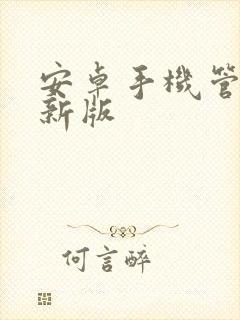 安卓手機管
新版
何言醉